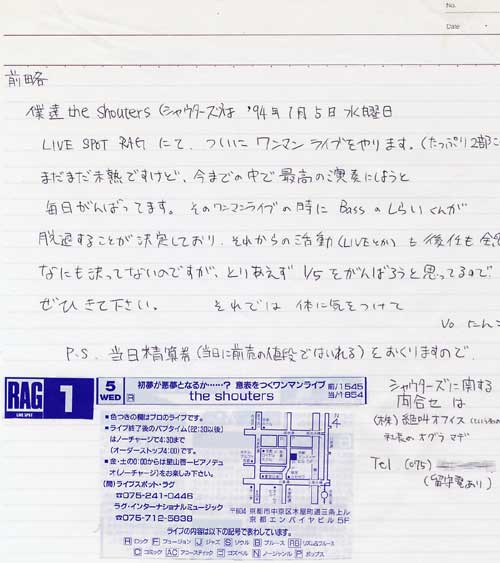 No.
Date
前略
僕達 the Shouters (シャウターズ)は '94年1月5日水曜日
LIVE SPOT RAG にて、ついに ワンマン ライブをやります。(たっぷり2部
まだまだ未熟ですけど、今までの中で最高の演奏にしようと
毎日がんばってます。そのワンマンライブの時に Bass の しらいくんが
脱退することが決定しており、それからの活動(LIVEとか)も後任も全
なにも決ってないのですが、とりあえず 1/5 をがんばろうと思ってるので
ぜひきて下さい。 それでは 体に気をつけて
Vo.
P.S. 当日精算券(当日に前売の値段ではいれる)をおくりますので、
RAG
LIVE SPOT
1
5
WED
R
初夢が悪夢となるか……? 意表をつくワンマンライブ
the shouters
前/1545
当/1854
■色つきの欄はプロのライブです。
■ライブ終了後のパブタイム(22:30以後)
はノーチャージで4:30まで
(オーダーストップ4:00)です。
■金・土の0:00からは里山晋一ピアノデュ
オ(ノーチャージ)をお楽しみ下さい。
(問)ライブスポット・ラグ
☎075-241-0446
ラグ・インターナショナルミュージック
☎075-712-5838
N
〒604 京都市中京区木屋町通三条上ル
京都エンパイヤビル5F
ライブの内容は以下の記号で表わしています。
R ロック F フュージョン J ジャズ S ソウル B ブルース RB リズム&ブルース
C コミック AC アコースティック G ゴスペル N ノージャンル P ポップス
シャウターズに関する
問合せ は
(株) 絶叫オフィス
社長のオグラ マデ
Tel (075)
(留守電あり)